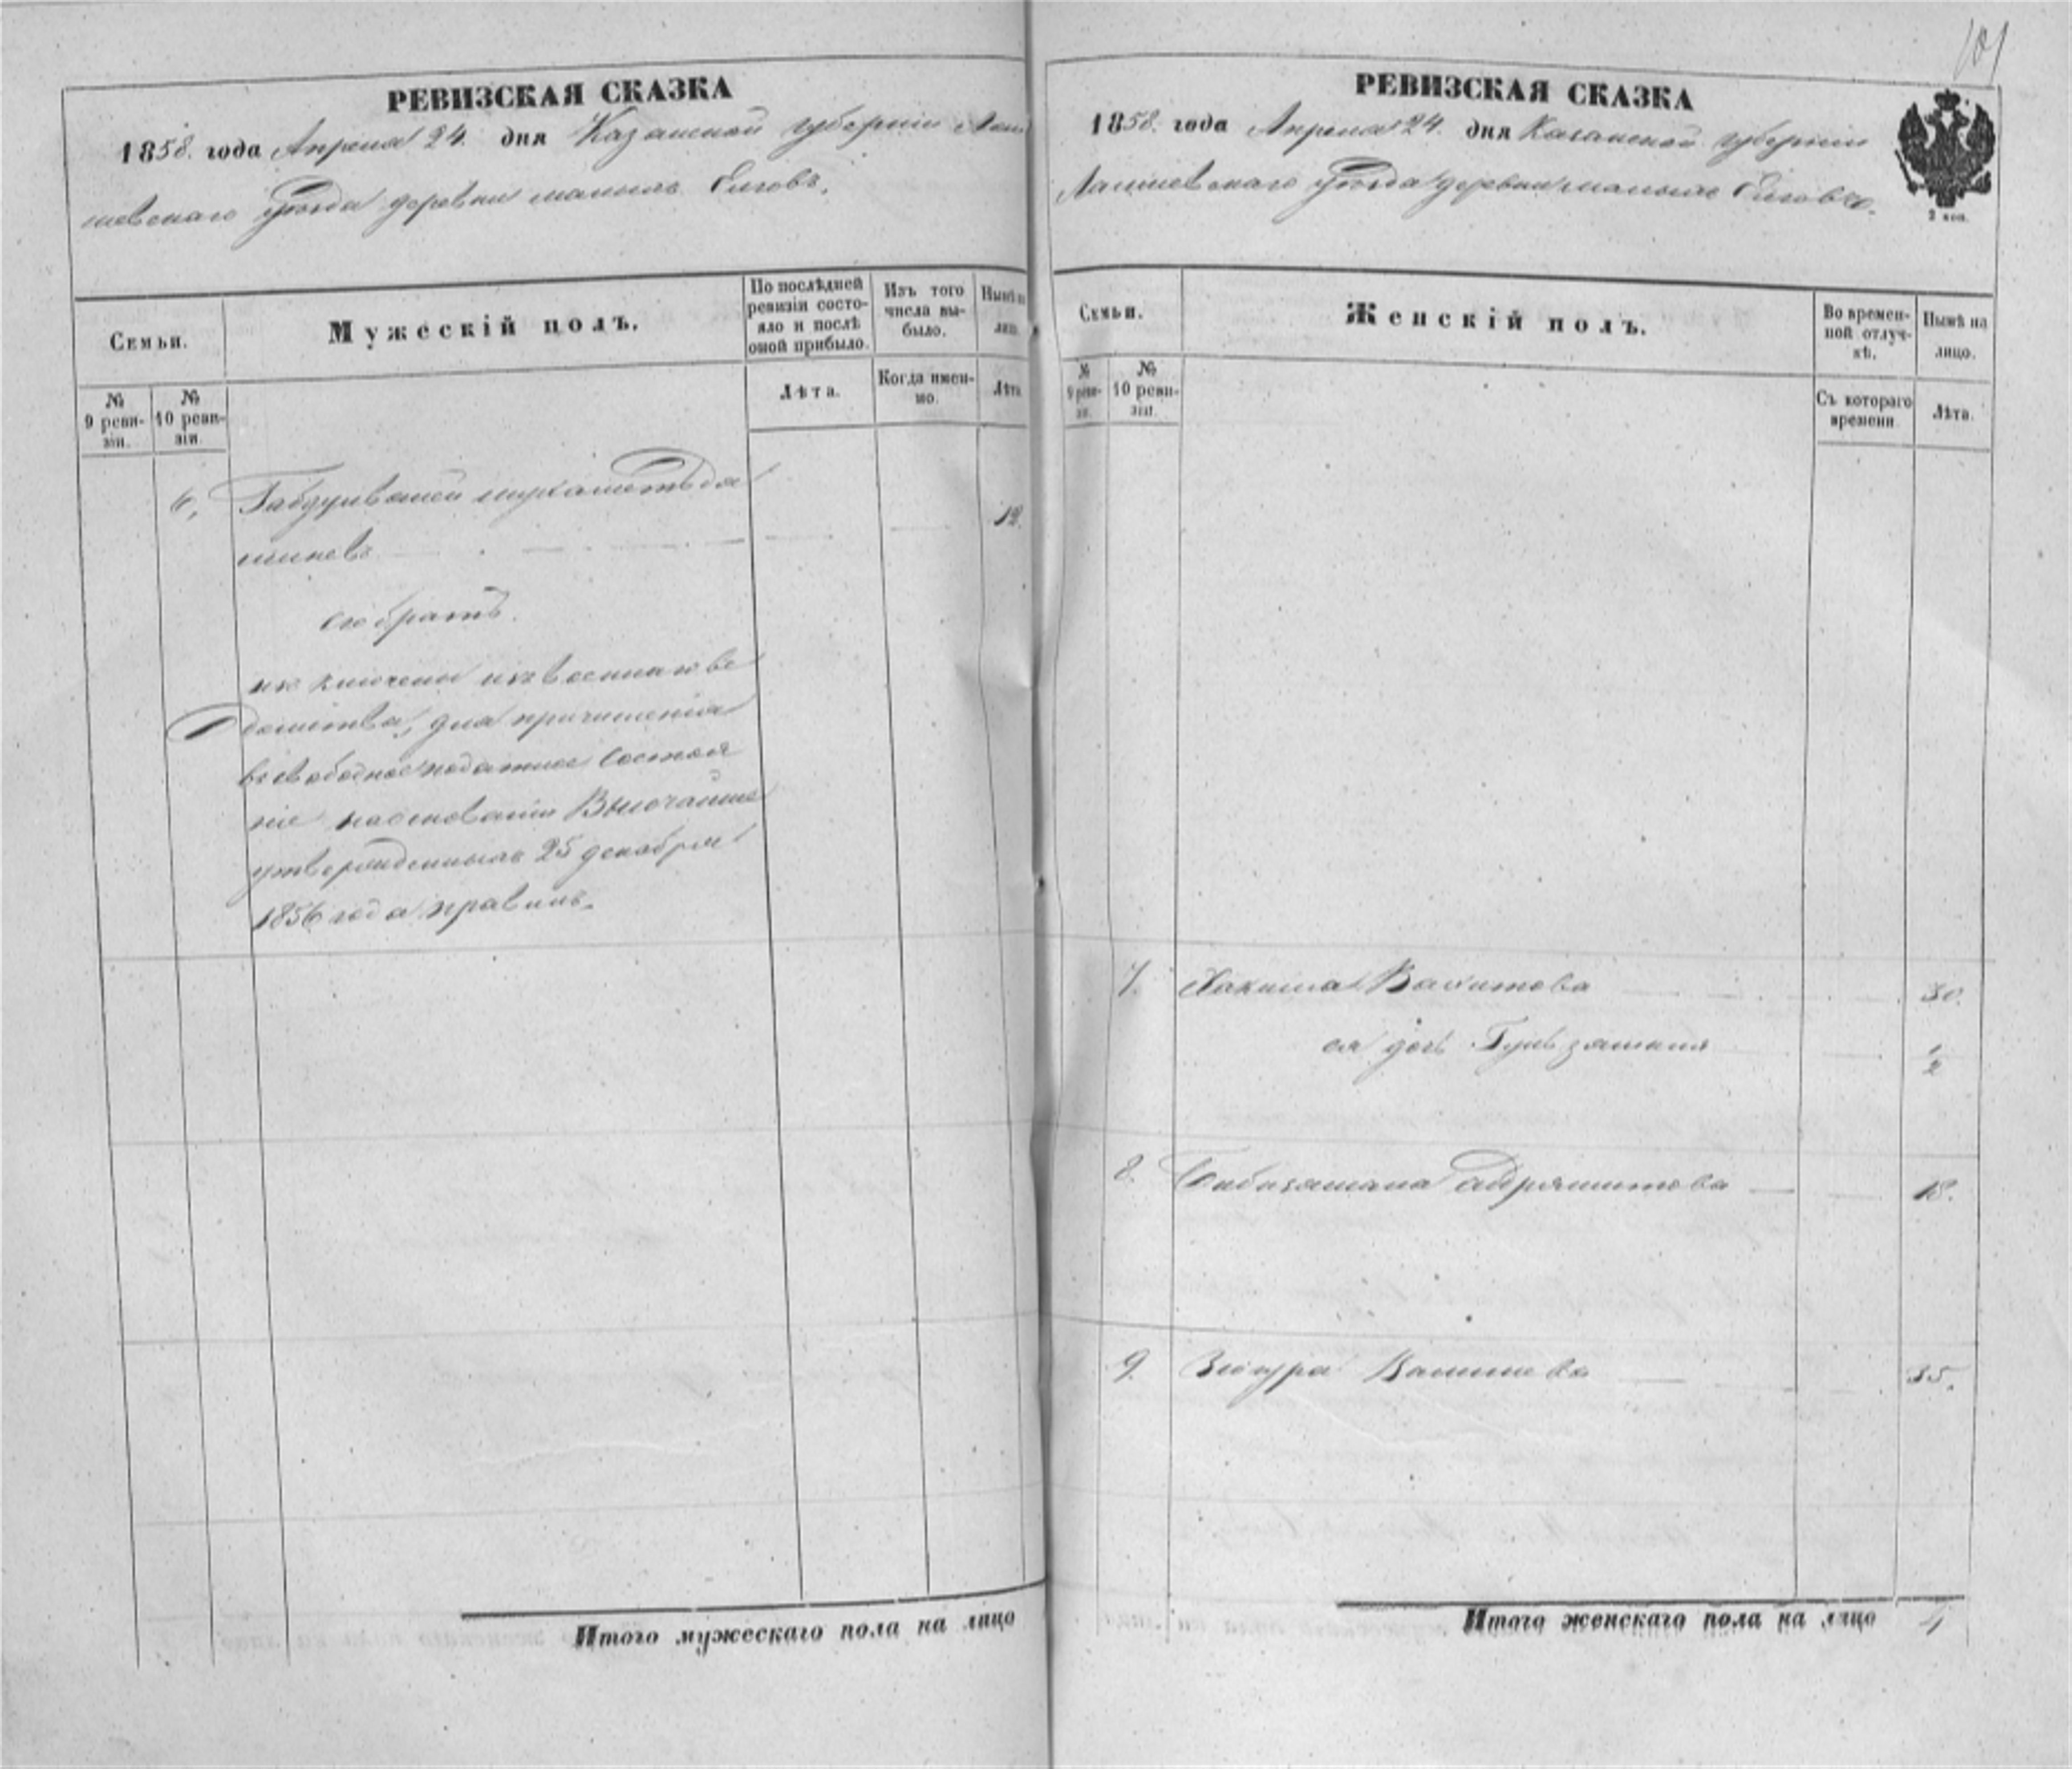 101
РЕВИЗСКАЯ СКАЗКА
1858. года Апреля 24. дня Казанской губернiи Лаи
шевскаго уѣзда деревни малыхъ Елговъ.
Семьи.
Мужескій полъ.
По послѣдней ревизіи состо-
яло и послѣ
оной прибыло.
Изъ того
числа вы-
было.
Нынѣ на
лицо.
№
9 реви-
зіи.
№
10 реви-
зіи.
Лѣта.
Когда имен-
но.
Лѣта
6.
12.
его братъ.
изключены изъ военнаго ве
домства, для причисленія
въ свободное податное состоя
ніе на основаніи Высочайше
утвержденныхъ 25 декабря
1856 года правилъ.
Итого мужескаго пола на лицо
РЕВИЗСКАЯ СКАЗКА
1858. года Апреля 24. дня Казанской губерніи
Лаишевскаго уѣзда деревни малыхъ Елговъ.
2 коп.
Семьи.
Женскій полъ.
Во времен-
ной отлуч-
кѣ.
Нынѣ на
лицо.
№
9 реви-
зіи.
№
10 реви-
зіи.
Съ котораго
времени
Лѣта.
7. Хакима Вахитова 30.
ея дочь 1/2
8. 18.
9. 35.
Итого женскаго пола на лицо 4